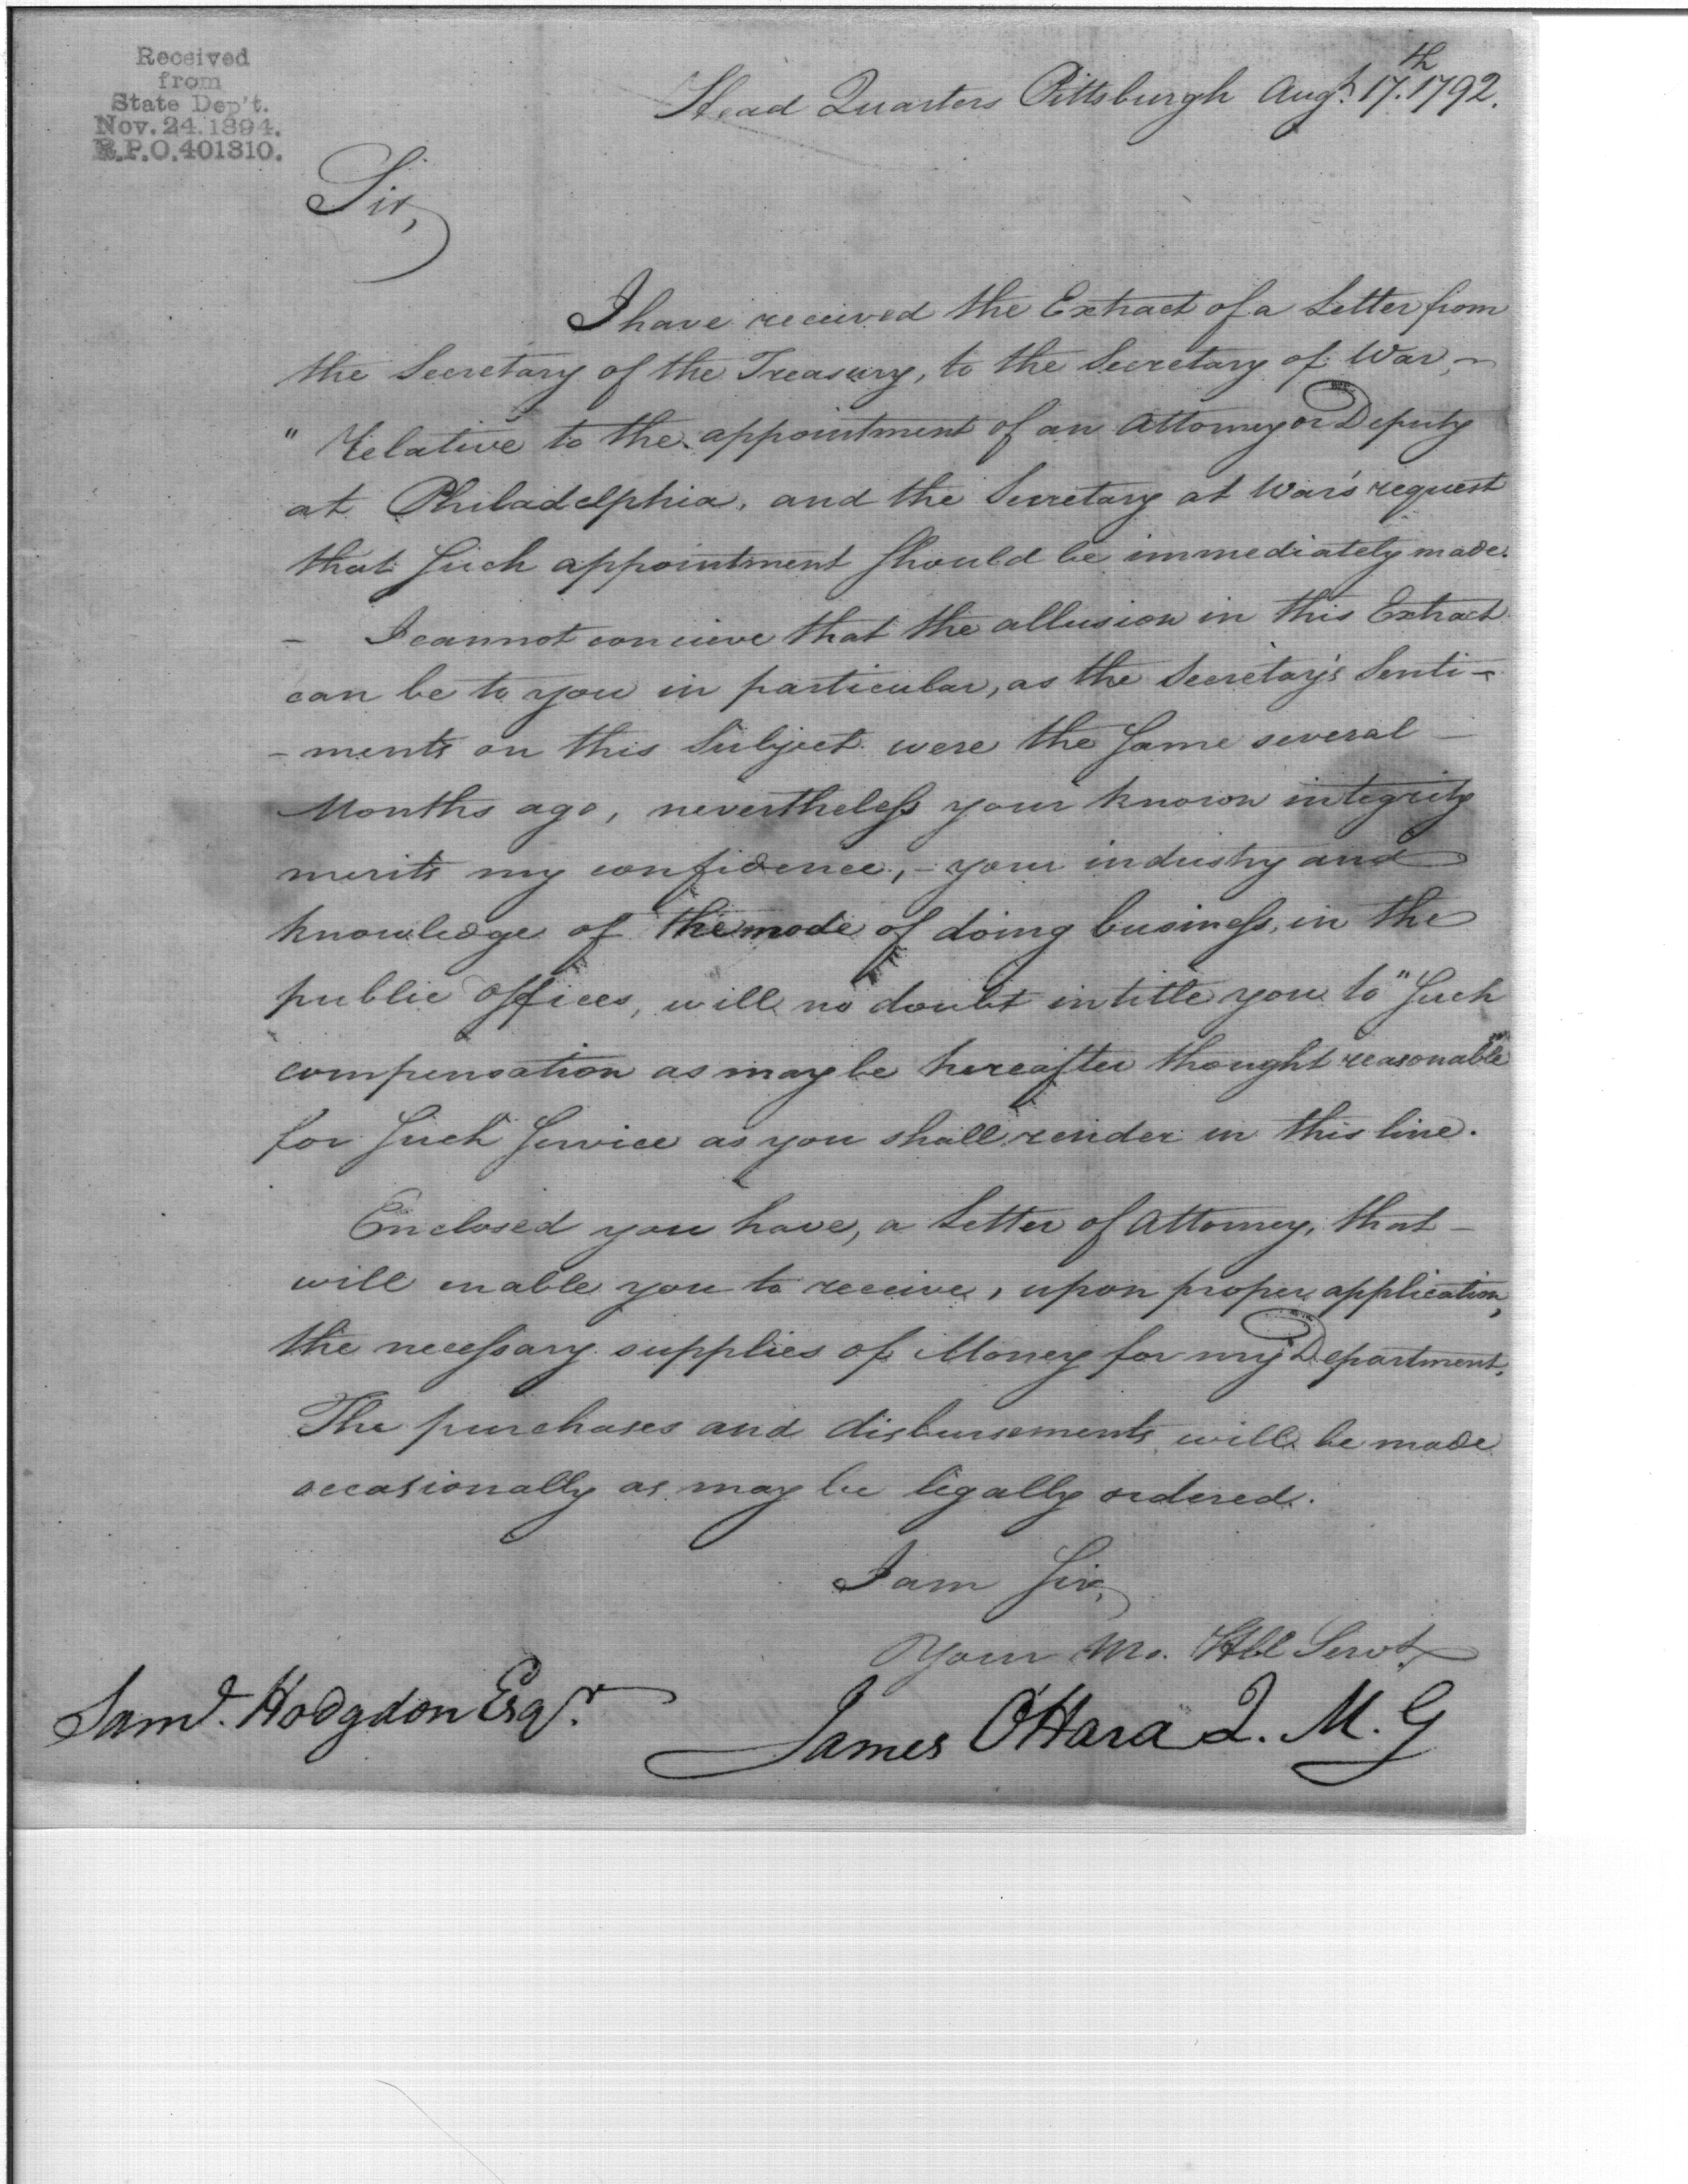 Received
from
State Dep't.
Nov. 24. 1894.
R.P.O. 401310.
Head Quarters Pittsburgh Augt. 17th. 1792.
Sir,
I have received the Extract of a Letter from
the Secretary of the Treasury, to the Secretary of War, –
" Relative to the appointment of an Attorney or Deputy
at Philadelphia, and the Secretary at War's request
that such appointment should be immediately made.
– I cannot concieve that the allusion in this Extract
can be to you in particular, as the Secretary's Senti-
-ments on this Subject were the same several –
Months ago, nevertheless your known integrity
merits my confidence, – your industry and
knowledge of the mode of doing business, in the
public offices, will no doubt intitle you to "such
compensation as may be hereafter thought reasonable"
for such service as you shall render in this line.
Enclosed you have, a Letter of Attorney, that –
will enable you to receive, upon proper application,
the necessary supplies of Money for my Department.
The purchases and disbursements will be made
occasionally as may be legally ordered.
I am Sir,
Your Mo. Hble Servt.
Saml. Hodgdon Esqr.
James O'Hara Q. M. G